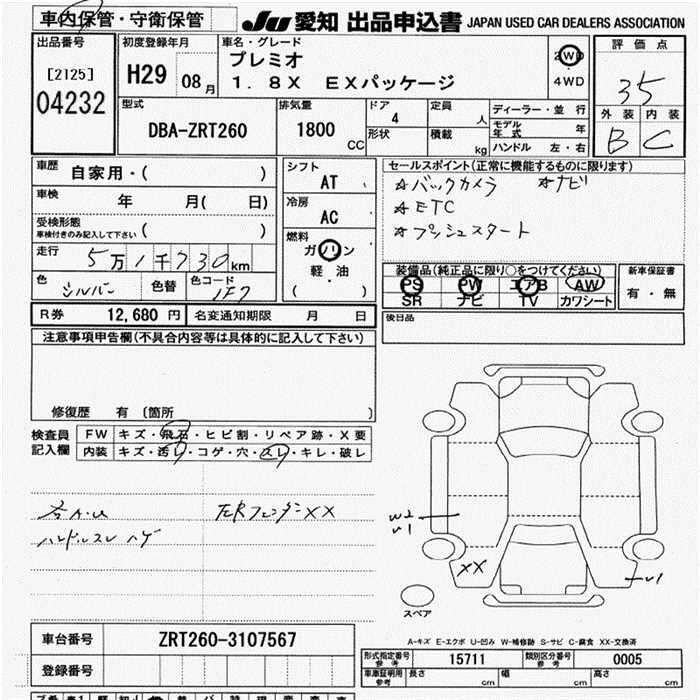 車内保管・守衛保管
JU 愛知 出品申込書 JAPAN USED CAR DEALERS ASSOCIATION
出品番号
[2125]
04232
初度登録年月
H29 08月
車名・グレード
プレミオ
1.8X EXパッケージ
2WD
4WD
評価点
35
外装 内装
B C
型式
DBA-ZRT260
排気量
1800 CC
ドア
4
形状
定員
人
積載
kg
ディーラー・並行
モデル年式 年
ハンドル 左・右
車歴 自家用・( )
車検 年 月( 日)
受検形態
車検付きのみ記入して下さい ( )
走行 5万1千730km
色 シルバー 色替 色コード 1F7
シフト
AT
冷房
AC
燃料
ガソリン
軽・油
( )
セールスポイント(正常に機能するものに限ります)
☆バックカメラ ☆ナビ
☆ETC
☆プッシュスタート
装備品(純正品に限り○をつけてください)
PS PW エアB AW
SR ナビ TV カワシート
新車保証書
有・無
R券 12,680円 名変通知期限 月 日
後日品
注意事項申告欄(不具合内容等は具体的に記入して下さい)
修復歴 有 〔箇所 〕
検査員記入欄
FW キズ・飛石・ヒビ割・リペア跡・X要
内装 キズ・汚レ・コゲ・穴・スレ・キレ・破レ
右A-u
左Rフェンダー XX
ハンドルスレ ハゲ
W2
U1
XX
U1
スペア
A-キズ E-エクボ U-凹み W-補修跡 S-サビ C-腐食 XX-交換済
車台番号 ZRT260-3107567
登録番号
形式指定番号 参考 15711 類別区分番号 参考 0005
車庫証明用 参考 長さ cm 幅 cm 高さ cm